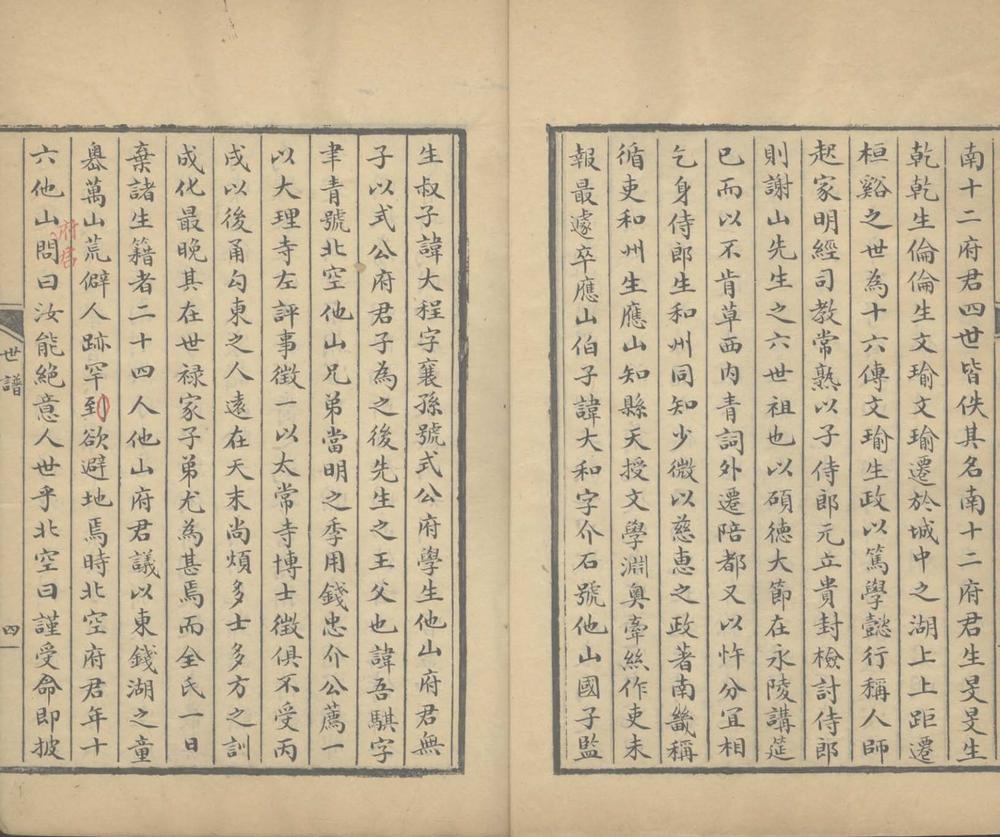 南十二府君四世皆佚其名南十二府君生旻旻生
乾乾生倫倫生文瑜文瑜遷於城中之湖上上距遷
桓谿之世為十六傳文瑜生政以篤學懿行稱人師
起家明經司教常熟以子侍郎元立貴封檢討侍郎
則謝山先生之六世祖也以碩德大節在永陵講筵
已而以不肯草西內青詞外遷陪都又以忤分宜相
乞身侍郎生和州同知少微以慈惠之政著南畿稱
循吏和州生應山知縣天授文學淵奥牽絲作吏未
報最遽卒應山伯子諱大和字介石號他山國子監
生叔子諱大程字襄孫號式公府學生他山府君無
子以式公府君子為之後先生之王父也諱吾騏字
聿青號北空他山兄弟當明之季用錢忠介公薦一
以大理寺左評事徵一以太常寺博士徵俱不受丙
戌以後甬勾東之人遠在天末尚煩多士多方之訓
成化最晚其在世祿家子弟尤為甚焉而全氏一日
棄諸生籍者二十四人他山府君議以東錢湖之童
嶴萬山荒僻人跡罕到欲避地焉時北空府君年十
六他山問曰汝能絕意人世乎北空曰謹受命即披
府君
世譜
四